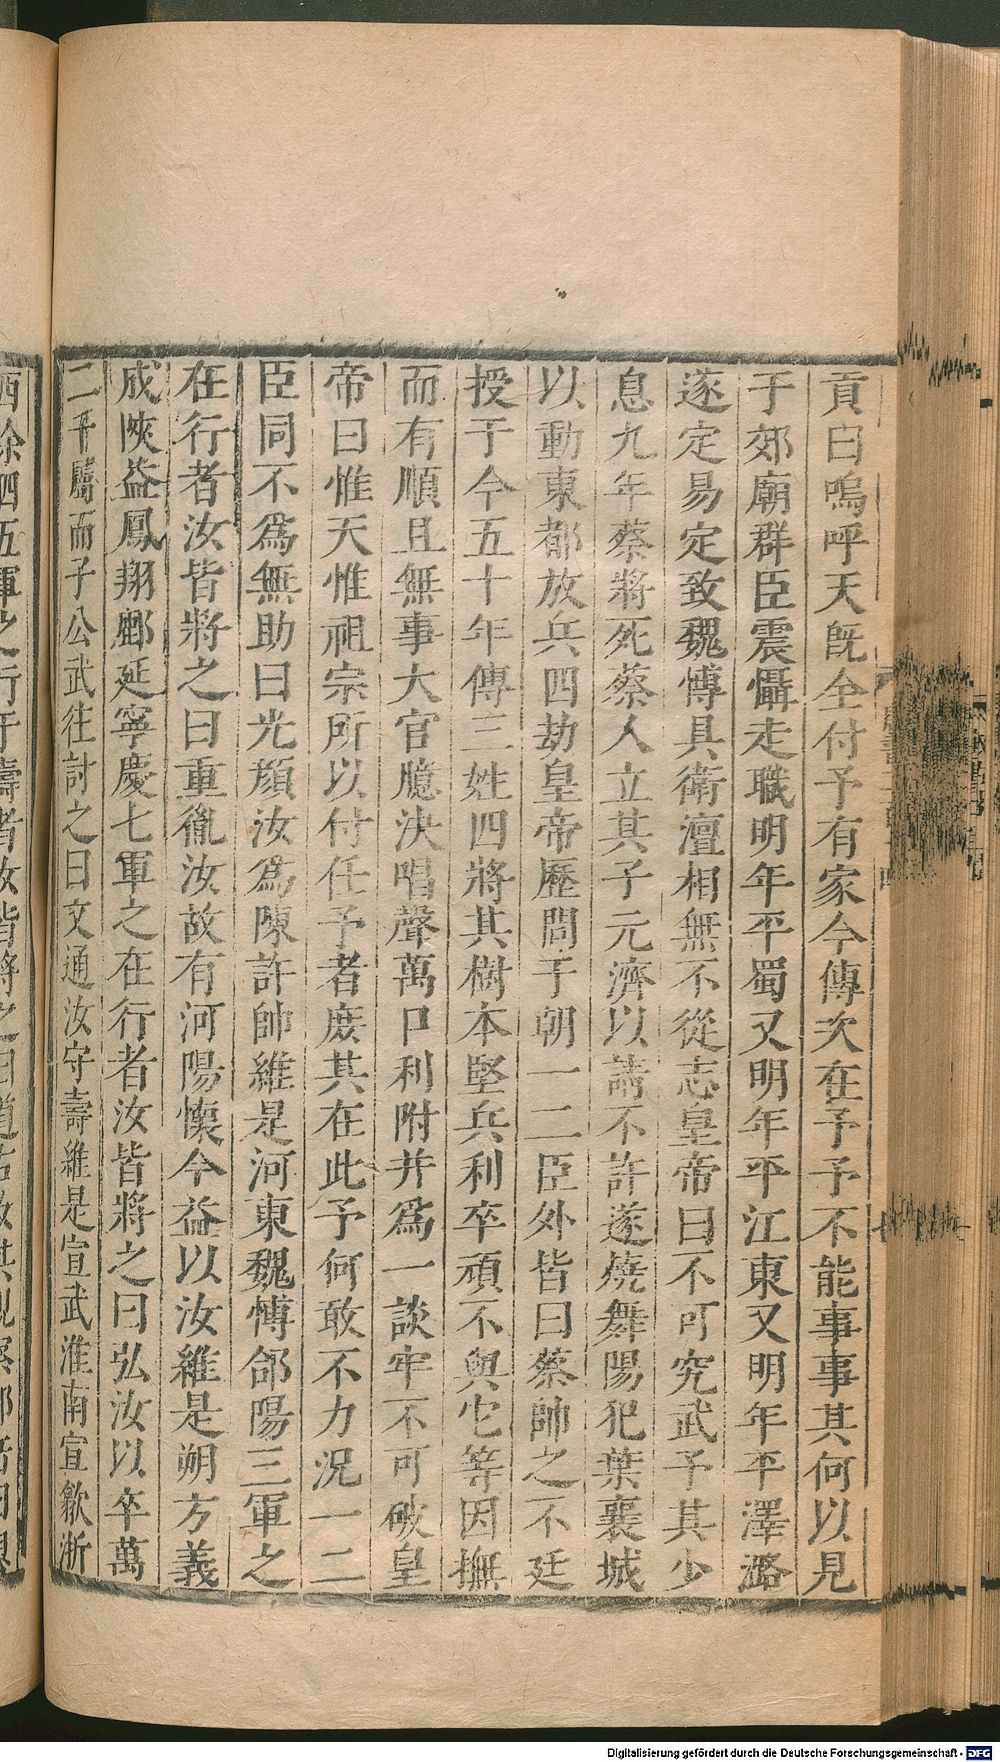 貢曰嗚呼天旣全付予有家今傳次在予予不能事事其何以見
于郊廟群臣震懾走職明年平蜀又明年平江東又明年平澤潞
遂定易定致魏愽具衛澶相無不從志皇帝曰不可究武予其少
息九年蔡將死蔡人立其子元濟以請不許遂燒舞陽犯葉襄城
以動東都放兵四劫皇帝歷問于朝一二臣外皆曰蔡帥之不廷
授于今五十年傳三姓四將其樹本堅兵利卒頑不與它等因撫
而有順且無事大官臆決唱聲萬口利附并爲一談牢不可破皇
帝曰惟天惟祖宗所以付任予者庶其在此予何敢不力況一二
臣同不爲無助曰光顏汝爲陳許帥維是河東魏愽郃陽三軍之
在行者汝皆將之曰重胤汝故有河陽懷今益以汝維是朔方義
成陝益鳳翔鄜延寧慶七軍之在行者汝皆將之曰弘汝以卒萬
二千屬而子公武往討之曰文通汝守壽維是宣武淮南宣歙浙
西徐泗五軍之行于壽者汝皆將之曰道古汝其觀察鄂岳曰愬
Digitalisierung gefördert durch die Deutsche Forschungsgemeinschaft - DFG